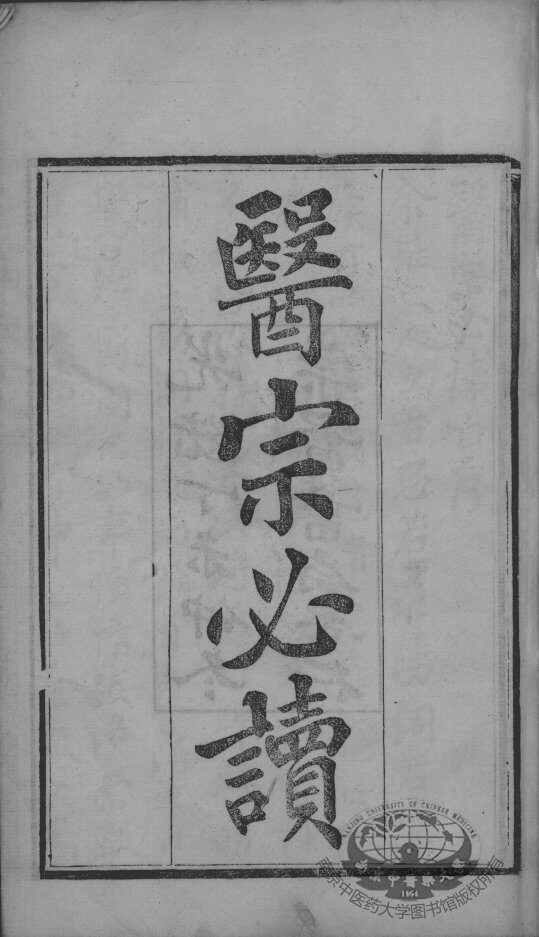 醫宗必讀
NANJING UNIVERSITY OF CHINESE MEDICINE
南京中医药大学图书馆版权所有